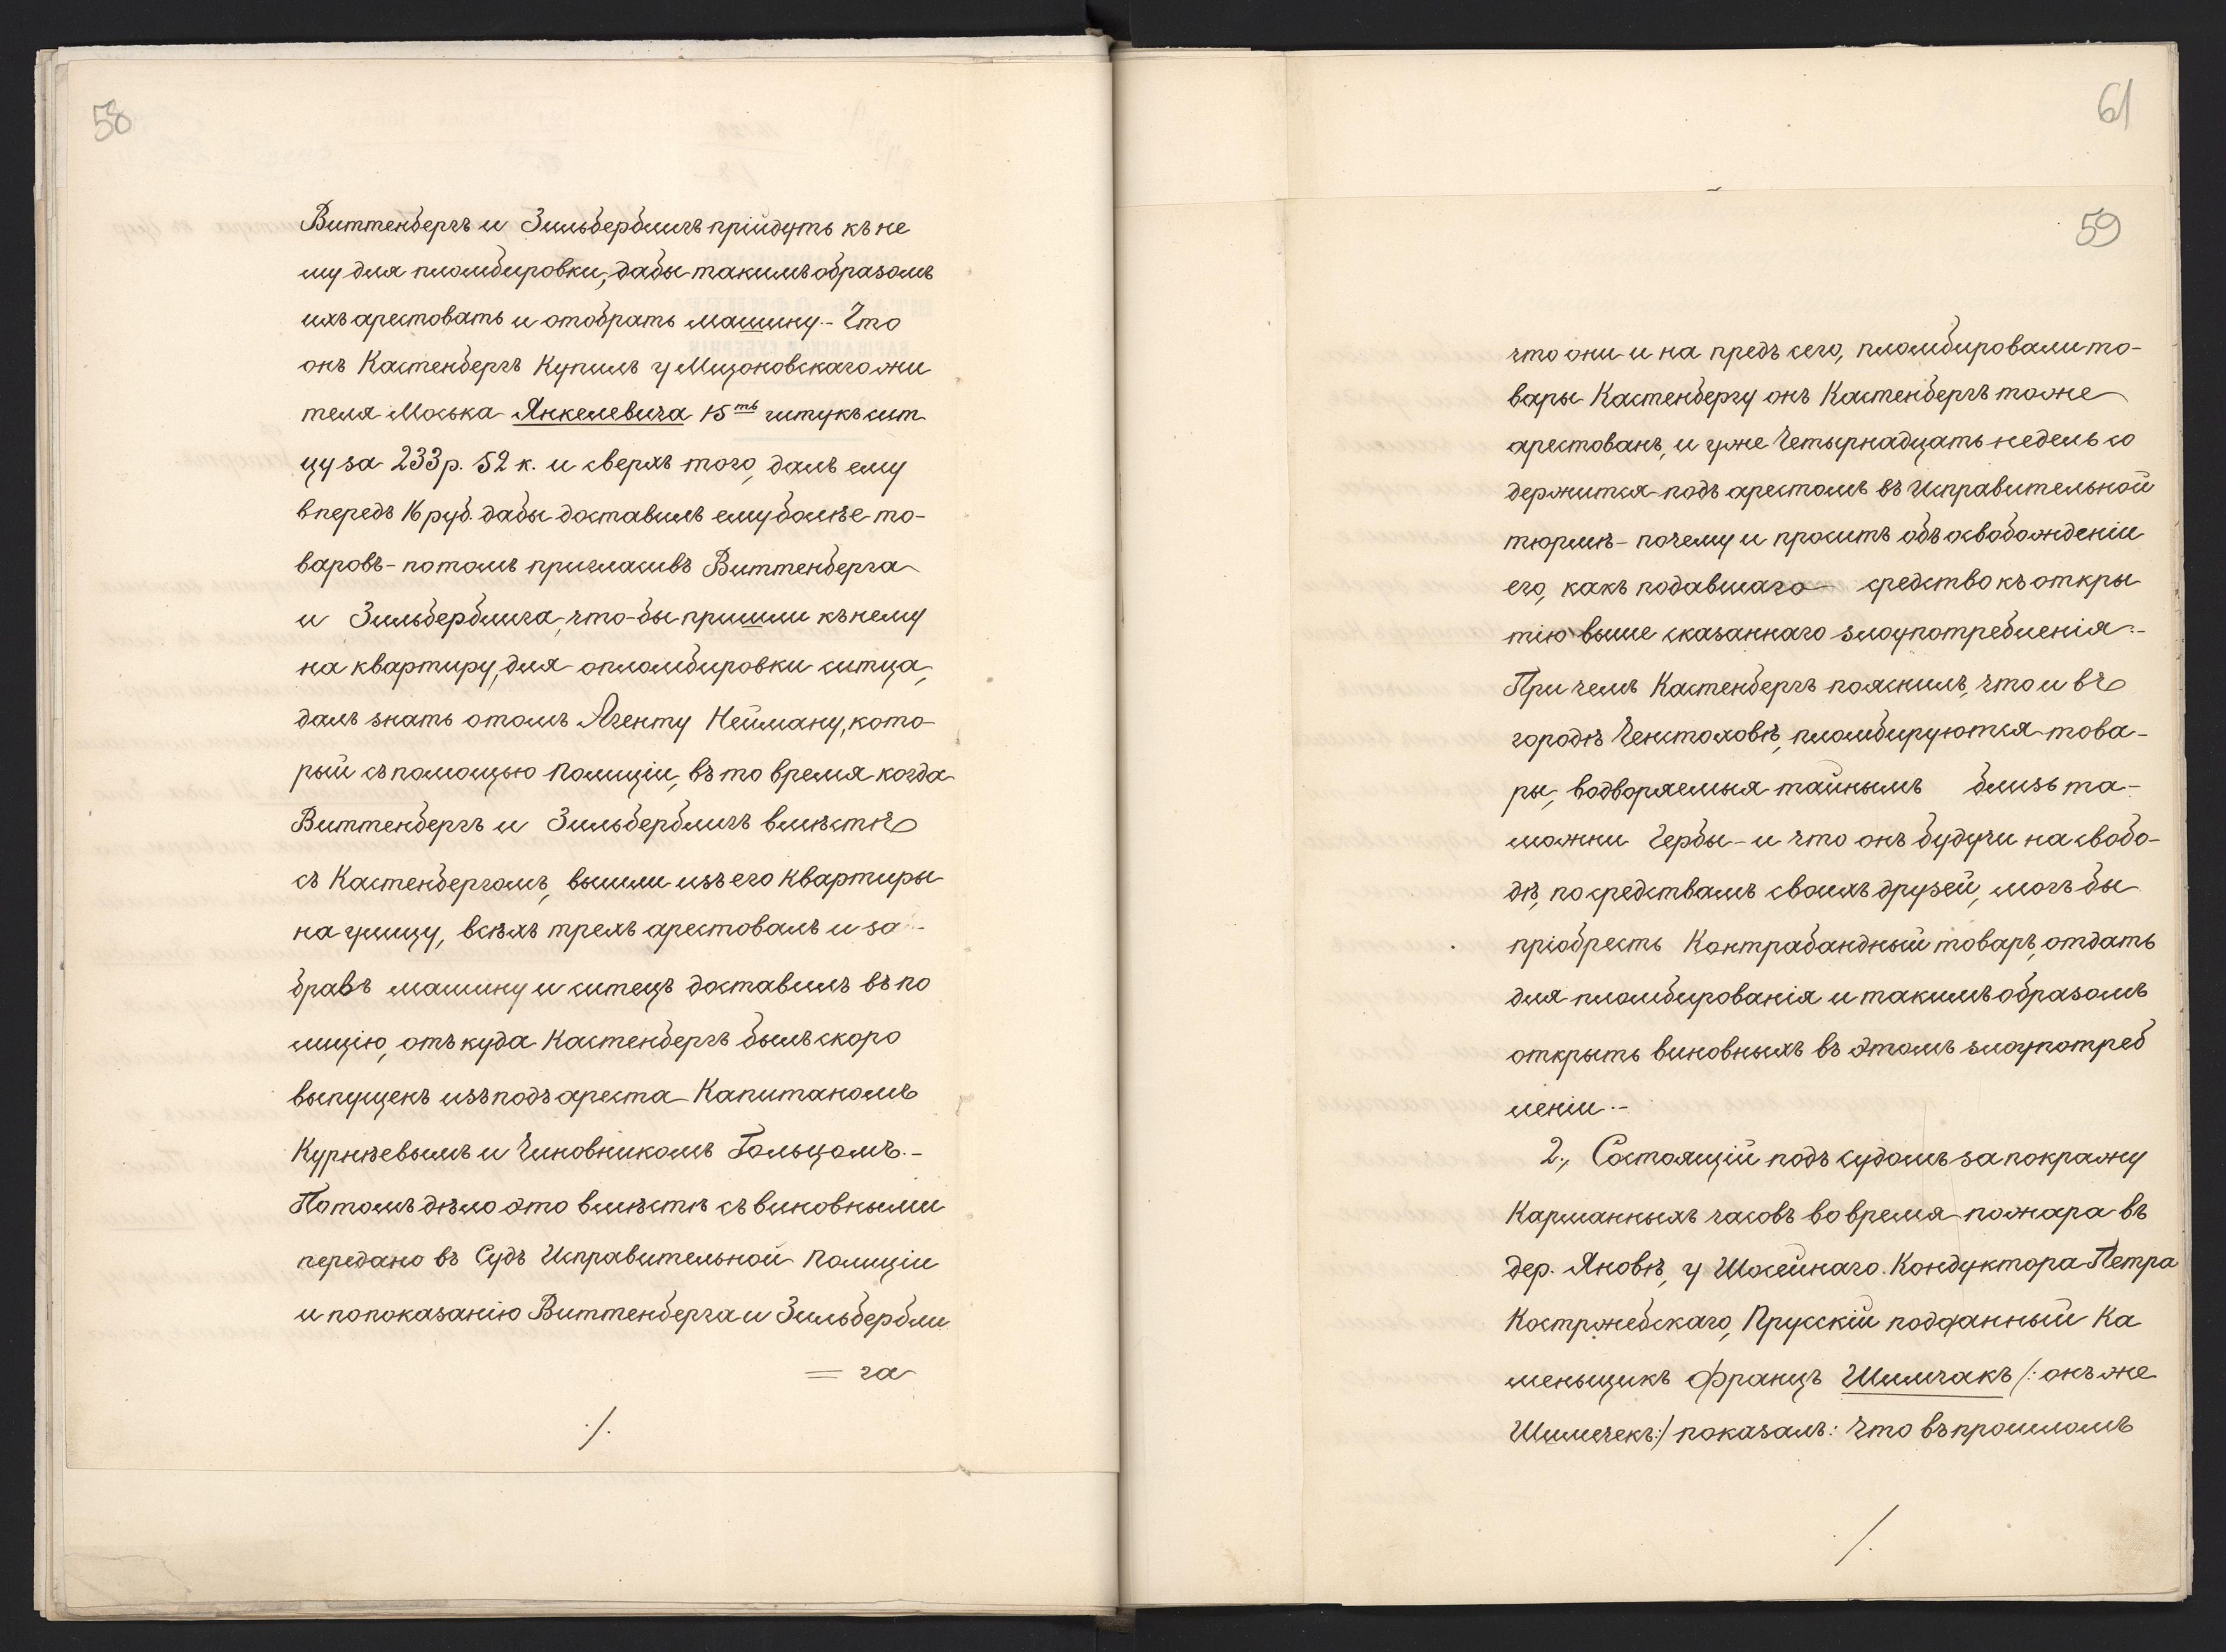 58
Виттенбергъ и Зильберблигъ прійдутъ къ не
му для пломбировки, дабы такимъ образомъ
ихъ арестовать и отобрать машину.- Что
онъ Кастенбергъ купилъ у Мщоновскаго жи
теля Моська Янкелевича 15ть штукъ сит
цу за 233 р. 52 к. и сверхъ того, далъ ему
впередъ 16 руб. дабы доставилъ ему болѣе то-
варовъ - потомъ пригласивъ Виттенберга
и Зильберблига, что-бы пришли къ нему
на квартиру, для опломбировки ситца,
далъ знать отомъ Агенту Нейману, кото-
рый съ помощью Полиціи, въ то время когда
Виттенбергъ и Зильберблигъ вмѣстѣ
съ Кастенбергомъ, вышли изъ его квартиры
на улицу, всѣхъ трехъ арестовалъ и за-
бравъ машину и ситецъ доставилъ въ по
лицію, отъ куда Кастенбергъ былъ скоро
выпущенъ изъ подъ ареста Капитаномъ
Курнѣевымъ и Чиновникомъ Гольцомъ.-
Потомъ дѣло это вмѣстѣ съ виновными
передано въ Судъ Исправительной Полиціи
и по показанію Виттенберга и Зильбербли
= га
./.
61
59
что они и на предъ сего, пломбировали то-
вары Кастенбергу онъ Кастенбергъ тоже
арестованъ, и уже Четырнадцать недель со
держится подъ арестомъ въ Исправительной
тюрмѣ - почему и проситъ объ освобожденіи
его, какъ подавшаго средство къ откры
тію выше сказаннаго злоупотребленія.-
При чемъ Кастенбергъ пояснилъ, что и въ
городѣ Ченстоховѣ, пломбируются това-
ры, водворяемыя тайнымъ близь та-
можни Гербы - и что онъ будучи на свобо-
дѣ, по средствамъ своихъ друзей, могъ бы
пріобресть Контрабандный товаръ, отдать
для пломбированія и такимъ образомъ
открыть виновныхъ въ этомъ злоупотреб
леніи.-
2., Состоящій подъ судомъ за покражу
Карманныхъ часовъ во время пожара въ
дер. Яновѣ, у Шосейнаго Кондуктора Петра
Костржебскаго, Прусскій подданный Ка
меньщикъ Францъ Шимчакъ /: онъ же
Шимечекъ:/ показалъ: Что въ прошломъ
./.